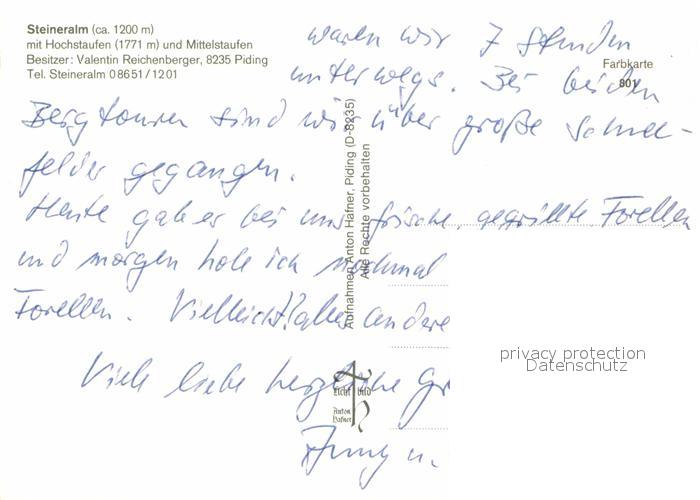 Steineralm (ca. 1200 m)
mit Hochstaufen (1771 m) und Mittelstaufen
Besitzer: Valentin Reichenberger, 8235 Piding
Tel. Steineralm 0 86 51 / 12 01
Farbkarte
801
waren wir 7 Stunden
unterwegs. Bei beiden
Bergtouren sind wir über große Schnee-
felder gegangen.
Heute gab es bei uns frische, gegrillte Forellen
und morgen hole ich nochmal
Forellen. Vielleicht? alles andere
Viele liebe herzliche Gr
u.
Aufnahmen Anton Hafner, Piding (D-8235)
Alle Rechte vorbehalten
Licht bild
Anton
Hafner
privacy protection
Datenschutz